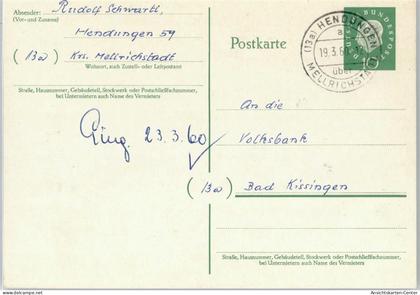 Absender: Rudolf Schwartl,
(Vor- und Zuname)
Hendungen 59
(13a) Krs. Mellrichstadt
Wohnort, auch Zustell- oder Leitpostamt
Straße, Hausnummer, Gebäudeteil, Stockwerk oder Postschließfachnummer,
bei Untermietern auch Name des Vermieters
Postkarte
(13a) HENDUNGEN
19.3.60
über
MELLRICHSTADT
DEUTSCHE BUNDESPOST
Eing. 23.3.60
An die
Volksbank
(13a) Bad Kissingen
Straße, Hausnummer, Gebäudeteil, Stockwerk oder Postschließfachnummer,
bei Untermietern auch Name des Vermieters
Ansichtskarten-Center